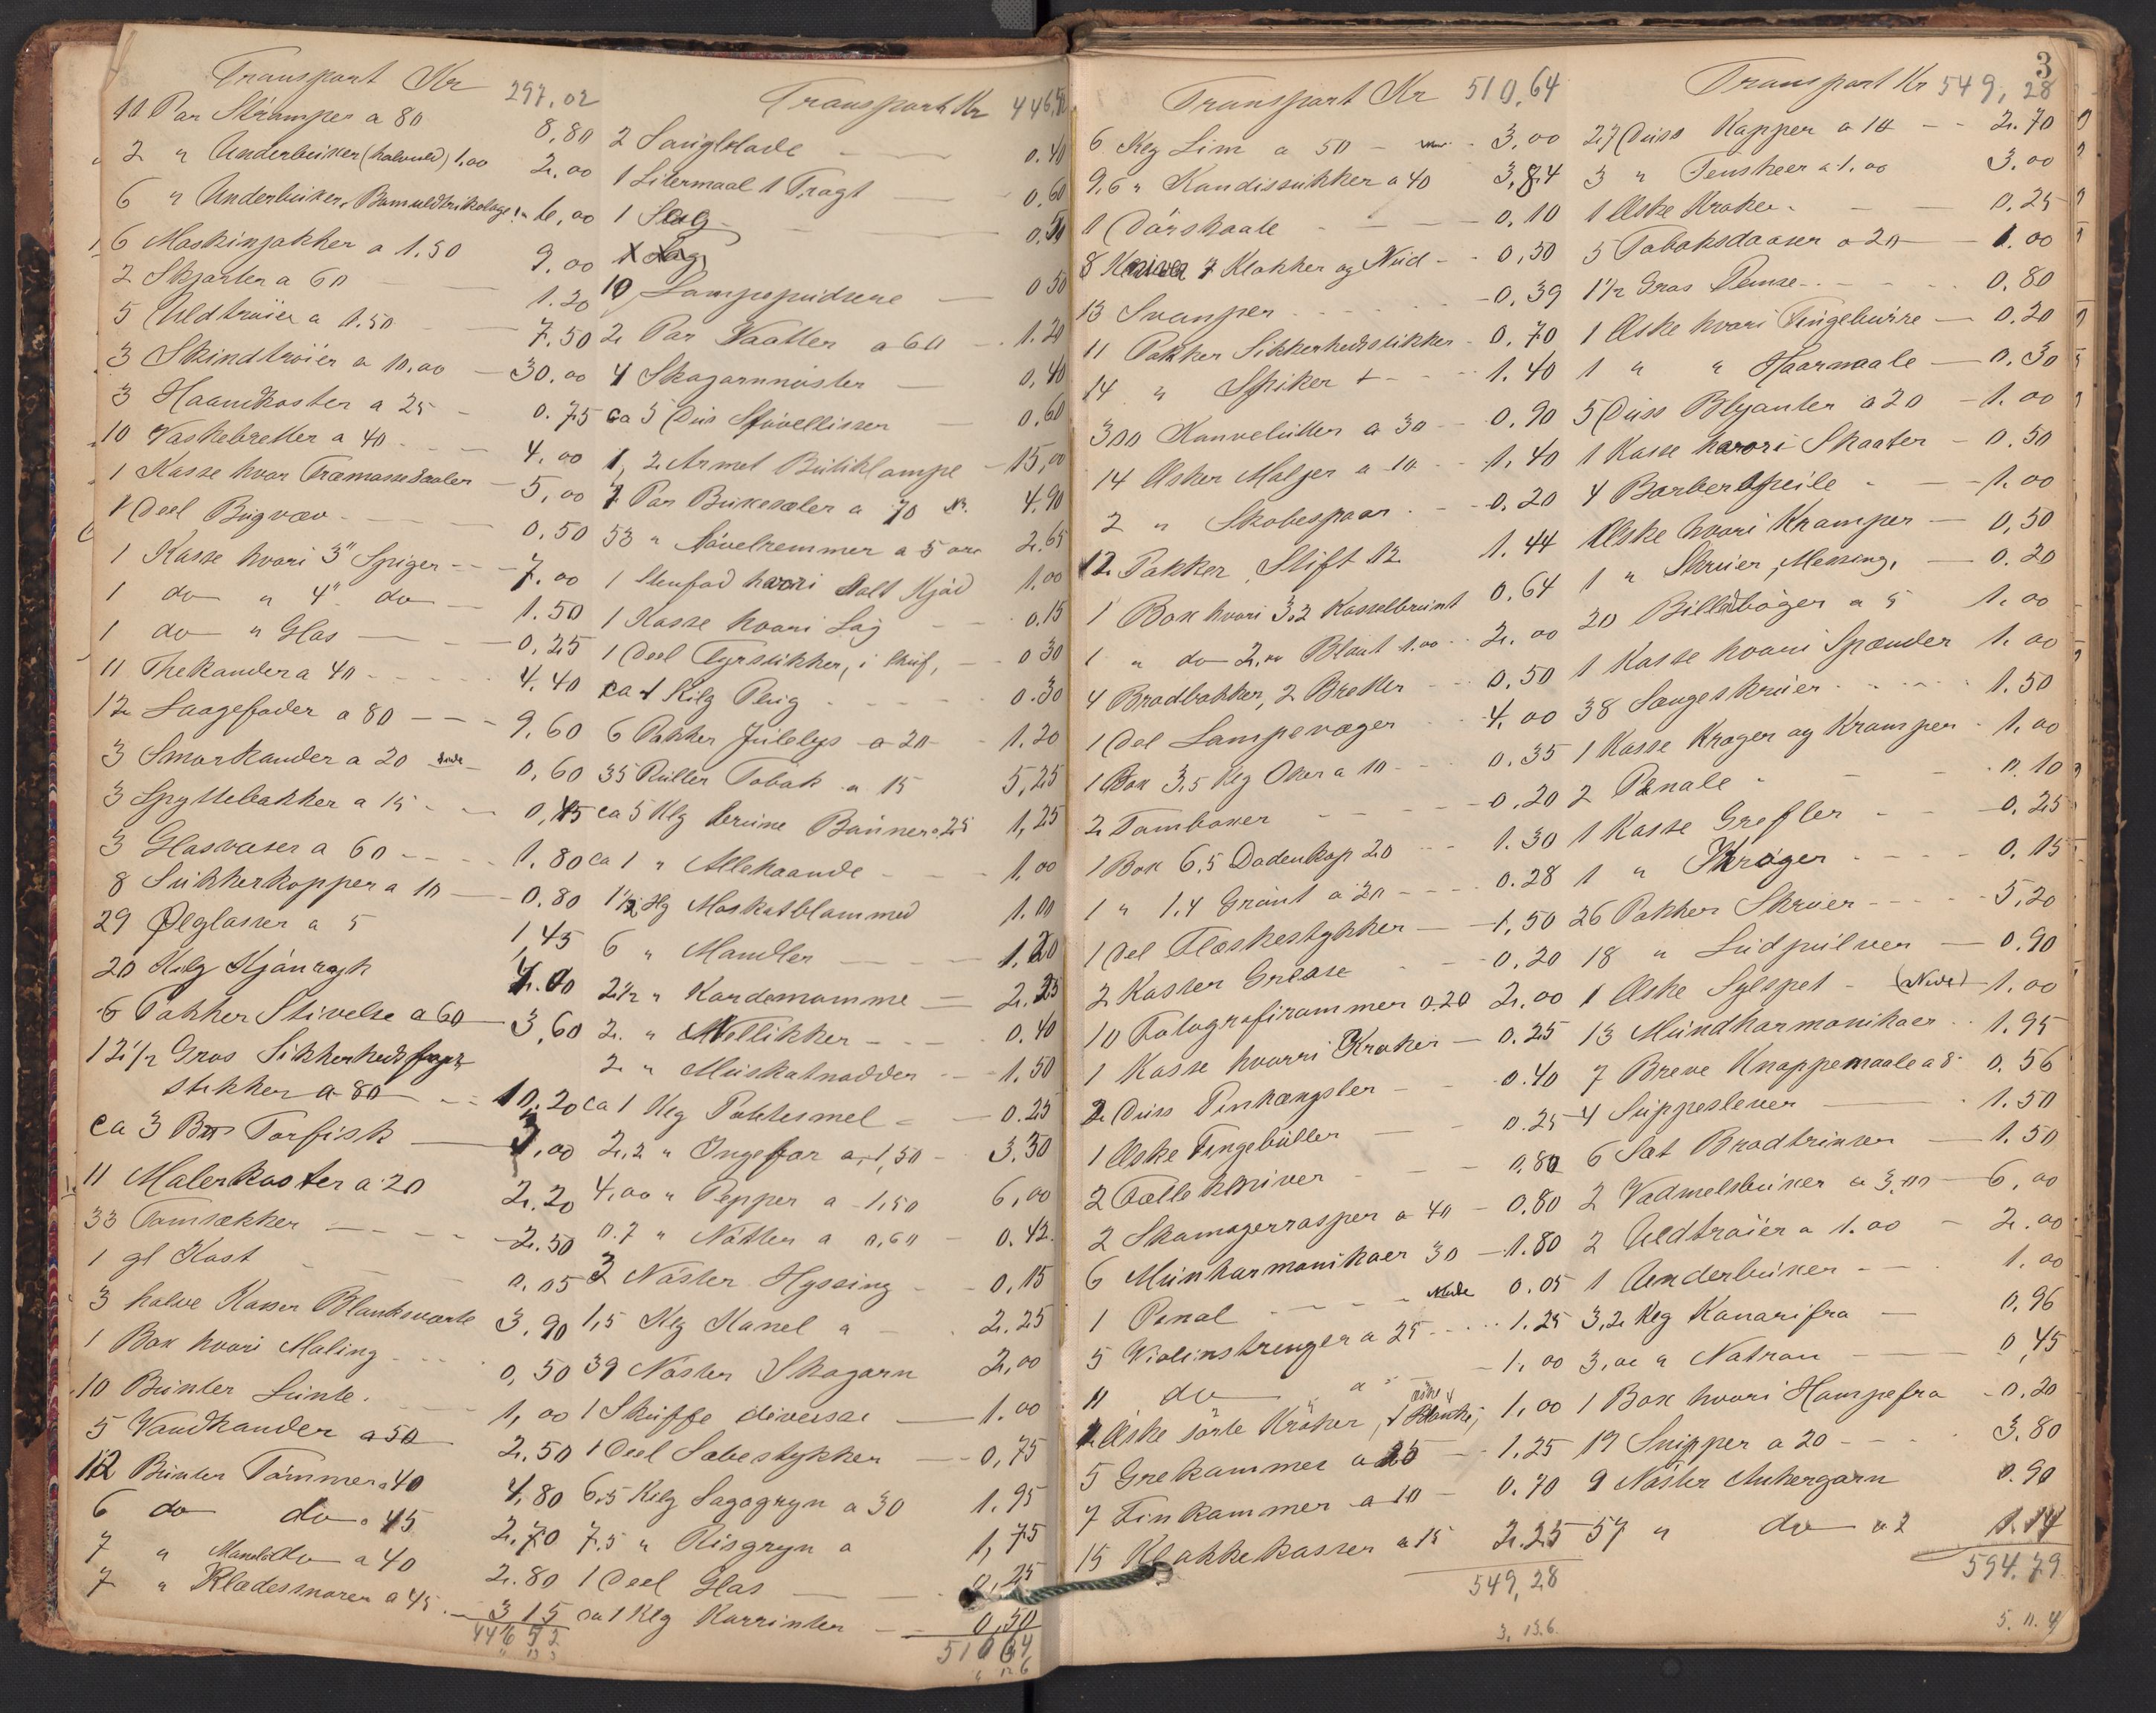 Transport Kr 297,02
11 Par Strømper a 80 8,80
2 " Underbuxer (halvuld) 1.00 2.00
6 " Underbuxer, Bomuldtrikotage 6,00
6 Maskinjakker a 1.50 9.00
2 Skjorter a 60 1.20
5 Uldtrøier a 1.50 7.50
3 Skindtrøier a 10,00 30,00
3 Haandkoster a 25 0.75
10 Vaskebretter a 40 4.00
1 Kasse hvor Træmassesaaler 5,00
1 Deel Bugvæv 0.50
1 Kasse hvori 3" Spiger 7.00
1 do " 4" do 1.50
1 do " Glas 0,25
11 Thekander a 40 4.40
12 Laagefader a 80 9,60
3 Smørkander a 20 0,60
3 Spyttebakker a 15 0,45
3 Glasvaser a 60 1.80
8 Sukkerkopper a 10 0.80
29 Ølglasser a 5 1,45
20 Kilg Kjønrøgk
6 Pakker Stivelse a 60 3,60
12½ Gros Sikkerheds
stikker a 80 10.20
ca 3 Torfisk 3,00
11 Malerkoster a 20 2.20
33 Tomsække 2.50
1 gl Kost 0.05
3 halve Kasser Blanksværte 3,90
1 Box hvori Maling 0,50
10 Bunter Lunte 1,00
5 Vandkander a 50 2.50
12 Bunter Tømmer a 40 4,80
6 do do a 45 2.70
7 " do a 40 2.80
7 " Klædessnorer a 45 3 15
446 52
Transport Kr 446,5
2 Saugblade 0.40
1 Litermaal 1 Tragt 0,60
1 0.50
10 Lampepudsere 0 50
2 Par Vaatter a 60 1.20
4 Skogarnnøster 0,40
ca 5 Dus Støvellisser 0,60
1, 2 Armet Butiklampe 15,00
7 Par Buxesæler a 70 4,90
53 " Støvelremmer a 5 øre 2.65
1 Stenfad hvori Salt Kjød 1,00
1 Kasse hvori Løg 0.15
1 Deel Fyrstikker, i Skuf, 0 30
ca 1 Kilg Plug 0.30
6 Pakker Julelys a 20 1.20
35 Ruller Tobak a 15 5,25
ca 5 Klg brune Bønner a 25 1,25
ca 1 " Allehaande 1,00
1½ Hg Moskatblommed 1.00
6 " Mandler 1.20
2½ " Kardemomme 2.25
2 " Nellikker 0.40
2 " Muskatnødder 1.50
ca 1 Klg Potetesmel 0.25
2,2 " Ingefær a 1,50 3.30
4,00 " Pepper a 1,50 6,00
0.7 " Nøtter a 0,60 0.42
3 Nøster Hyssing 0,15
1,5 Klg Kanel a 2.25
39 Nøster Skogarn 2,00
1 Skuffe diverse 1.00
1 Deel Sæbestykker 0,75
6,5 Kilg Sagogryn a 30 1.95
7,5 " Risgryn a 1,75
1 Deel Glas 0,25
ca 1 Klg Korrinter 0,50
510 64
3
Transport Kr 510,64
6 Klg Lim a 50 3,00
9,6 " Kandissukker a 40 3,84
1 Dørskaale 0,10
8 Kniver 7 Klokker og Nud 0,50
13 Svamper 0,39
11 Pakker Sikkerhedsstikker 0,70
14 " Spiker 1.40
300 Konvolutter a 30 0,90
14 Æsker Maljer a 10 1,40
2 " Skobespaar 0.20
12 Pakker Stift 12 1.44
1 Box hvori 3.2 Kasselbrunt 0.64
1 " do 2,00 Blaat 1.00 2.00
4 Brødbakker, 2 Bretter 0.50
1 Del Lampevæger 4,00
1 Box 3,5 Klg Oker a 10 0.35
2 Tomboxer 0.20
1 Box 6,5 Dodenkop 20 1.30
1 " 1,4 Grønt a 20 0.28
1 Del Flæskestykker 1,50
2 Kasser Grease 0.20
10 Fotografirammer a 20 2.00
1 Kasse hvorri Kroker 0.25
2 Duss Penhængsler 0.40
1 Æske Fingebøller 0.25
2 Follekniver 0,80
2 Skomagerrasper a 40 0.80
6 Munharmonikaer 30 1.80
1 Penal 0.05
5 Violinstrenger a 25 1.25
11 do a 1,00
Æske sorte Krøker, 1 æske Blanke, 1,00
5 Grekammer a 25 1.25
7 Finkammer a 10 0.70
15 Klakkekasser a 15 2.25
549,28
3, 13.6.
Transport Kr 549,28
27 Duss Kapper a 10 2.70
3 " Tensheer a 1.00 3.00
1 Æske Kroker 0.25
5 Tobaksdaaser a 20 1.00
1½ Gros Penne 0,80
1 Æske hvori Fingebørre 0.20
1 " " Haarnaale 0.30
5 Duss Blyanter a 20 1.00
1 Kasse hvori Skaater 0.50
4 Barberspeile 1.00
Æske hvori Kramper 0,50
1 " Skruer, Messing, 0.20
20 Billedbøger a 5 1.00
1 Kasse hvori Spænder 1.00
38 Sengeskruer 1.50
1 Kasse Kroger og Kramper 1,00
2 Penale 0.10
1 Kasse Grefler 0.25
1 " Krøger 0.15
26 Pakker Skruer 5,20
18 " Ludpulver 0.90
1 Æske Sylspet 1.00
13 Mundharmonikaer 1.95
7 Breve Knappenaale a 8 0.56
4 Suppeslever 1.50
6 Sat Brødtrinser 1.50
2 Vadmelsbuxer a 3.00 6,00
2 Uldtrøier a 1.00 2.00
1 Underbuxer 1,00
3,2 Klg Kanarifrø 0,96
3,00 " Natron 0,45
1 Box hvori Hampefrø 0.20
19 Snipper a 20 3.80
9 Nøster Ankergarn 0.90
57 " do a 2 1.14
594.79
5. 11. 4